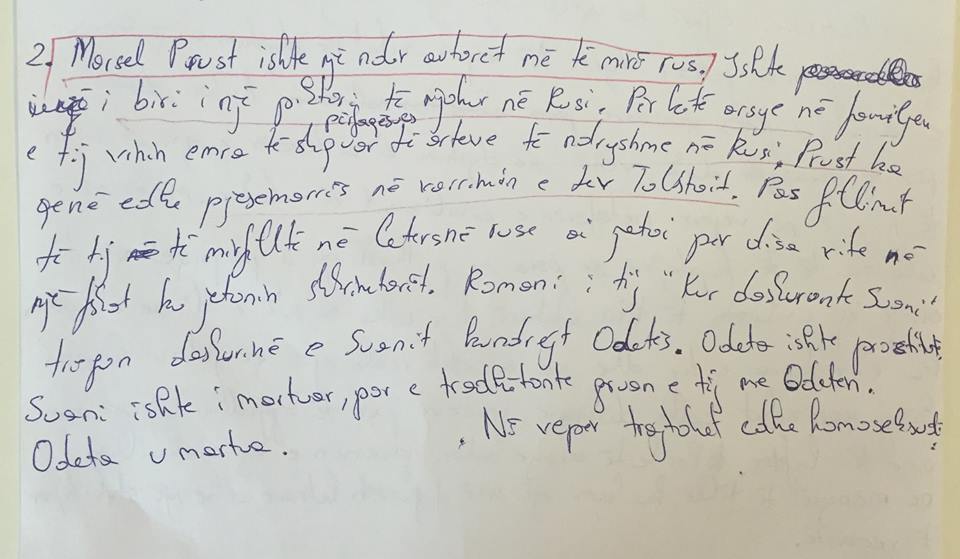 2. Marsel Prust ishte një ndër autorët më të mirë rus. Ishte
i biri i një piktori të njohur në Rusi. Për këtë arsye në familjen
përfaqësues
e tij vihin emra të shquar të arteve të ndryshme në Rusi. Prust ka
qenë edhe pjesëmarrës në varrimin e Lev Tolstoit. Pas fillimit
të tij të mirfilltë në letersnë ruse ai jetoi per disa vite në
një fshat ku jetonin shkrimtarët. Romani i tij "Kur dashuronte Suani"
tregon dashurinë e Suanit kundrejt Odetës. Odeta ishte prostitutë,
Suani ishte i martuar, por e tradhëtonte gruan e tij me Odeten.
Odeta u martua. Në veper trajtohet edhe